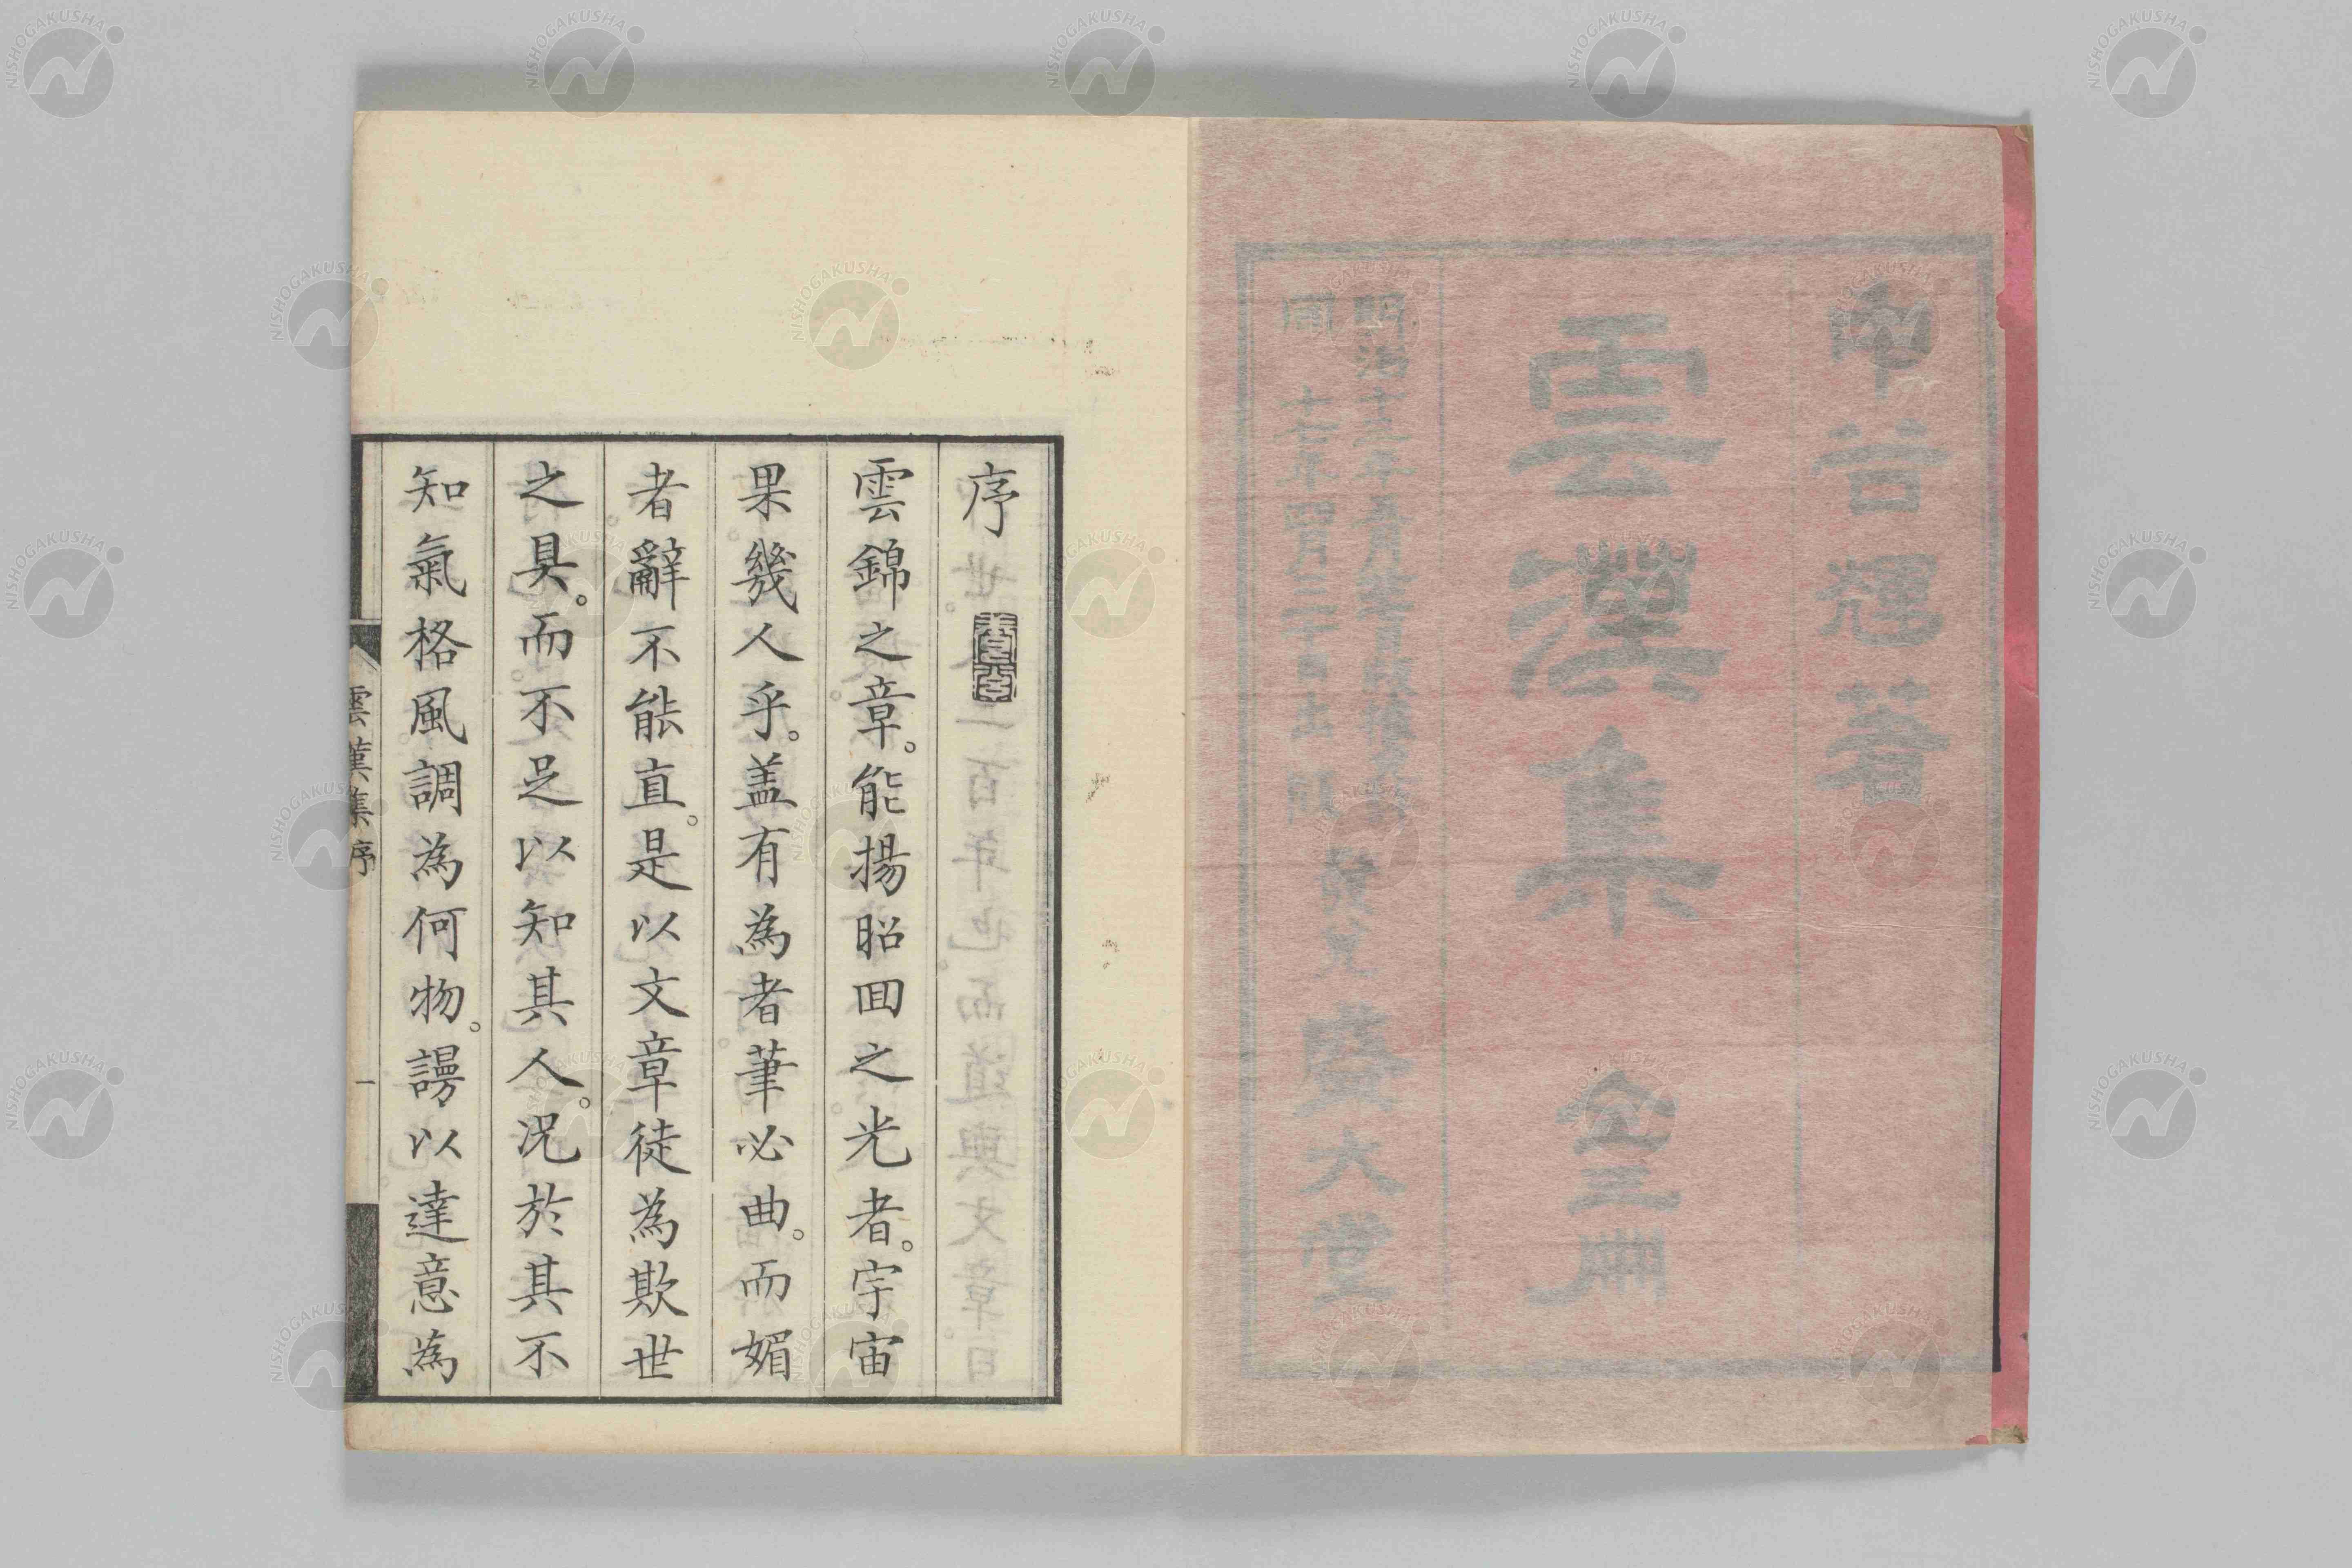 雲漢集
全三冊
明治十五年
同 十七年四月二十日出
發兌
盛大堂
序
雲錦之章。能揚昭回之光者。宇宙
果幾人乎。盖有為者筆必曲。而媚
者辭不能直。是以文章徒為欺世
之具。而不足以知其人。况於其不
知氣格風調為何物。謾以達意為
雲漢集序
一
NISHOGAKUSHA